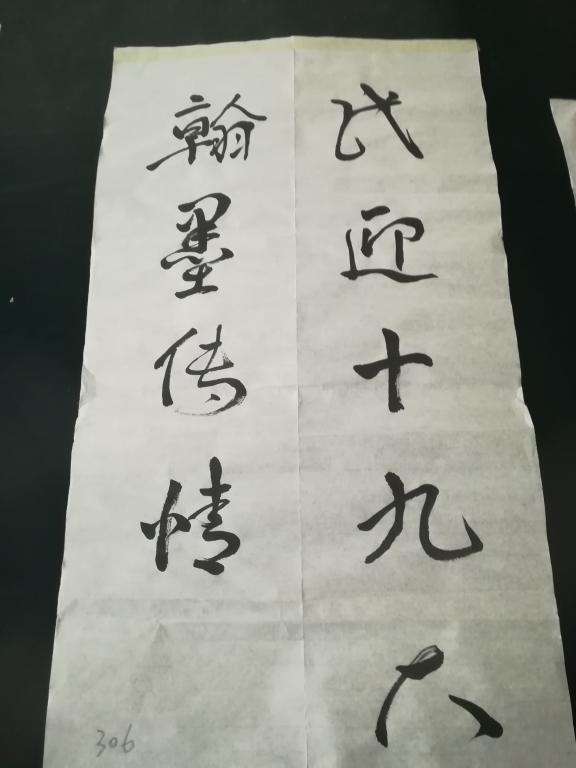 迎十九大
翰墨传情
306